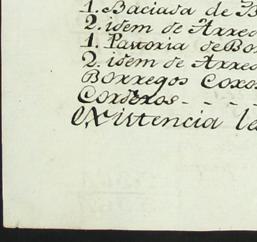 1. Baciada de B
2. idem de Arred
1. Pastoria de Bor
2. idem de Arred
Borregos Coxos
Corderos - - - -
Existencia la